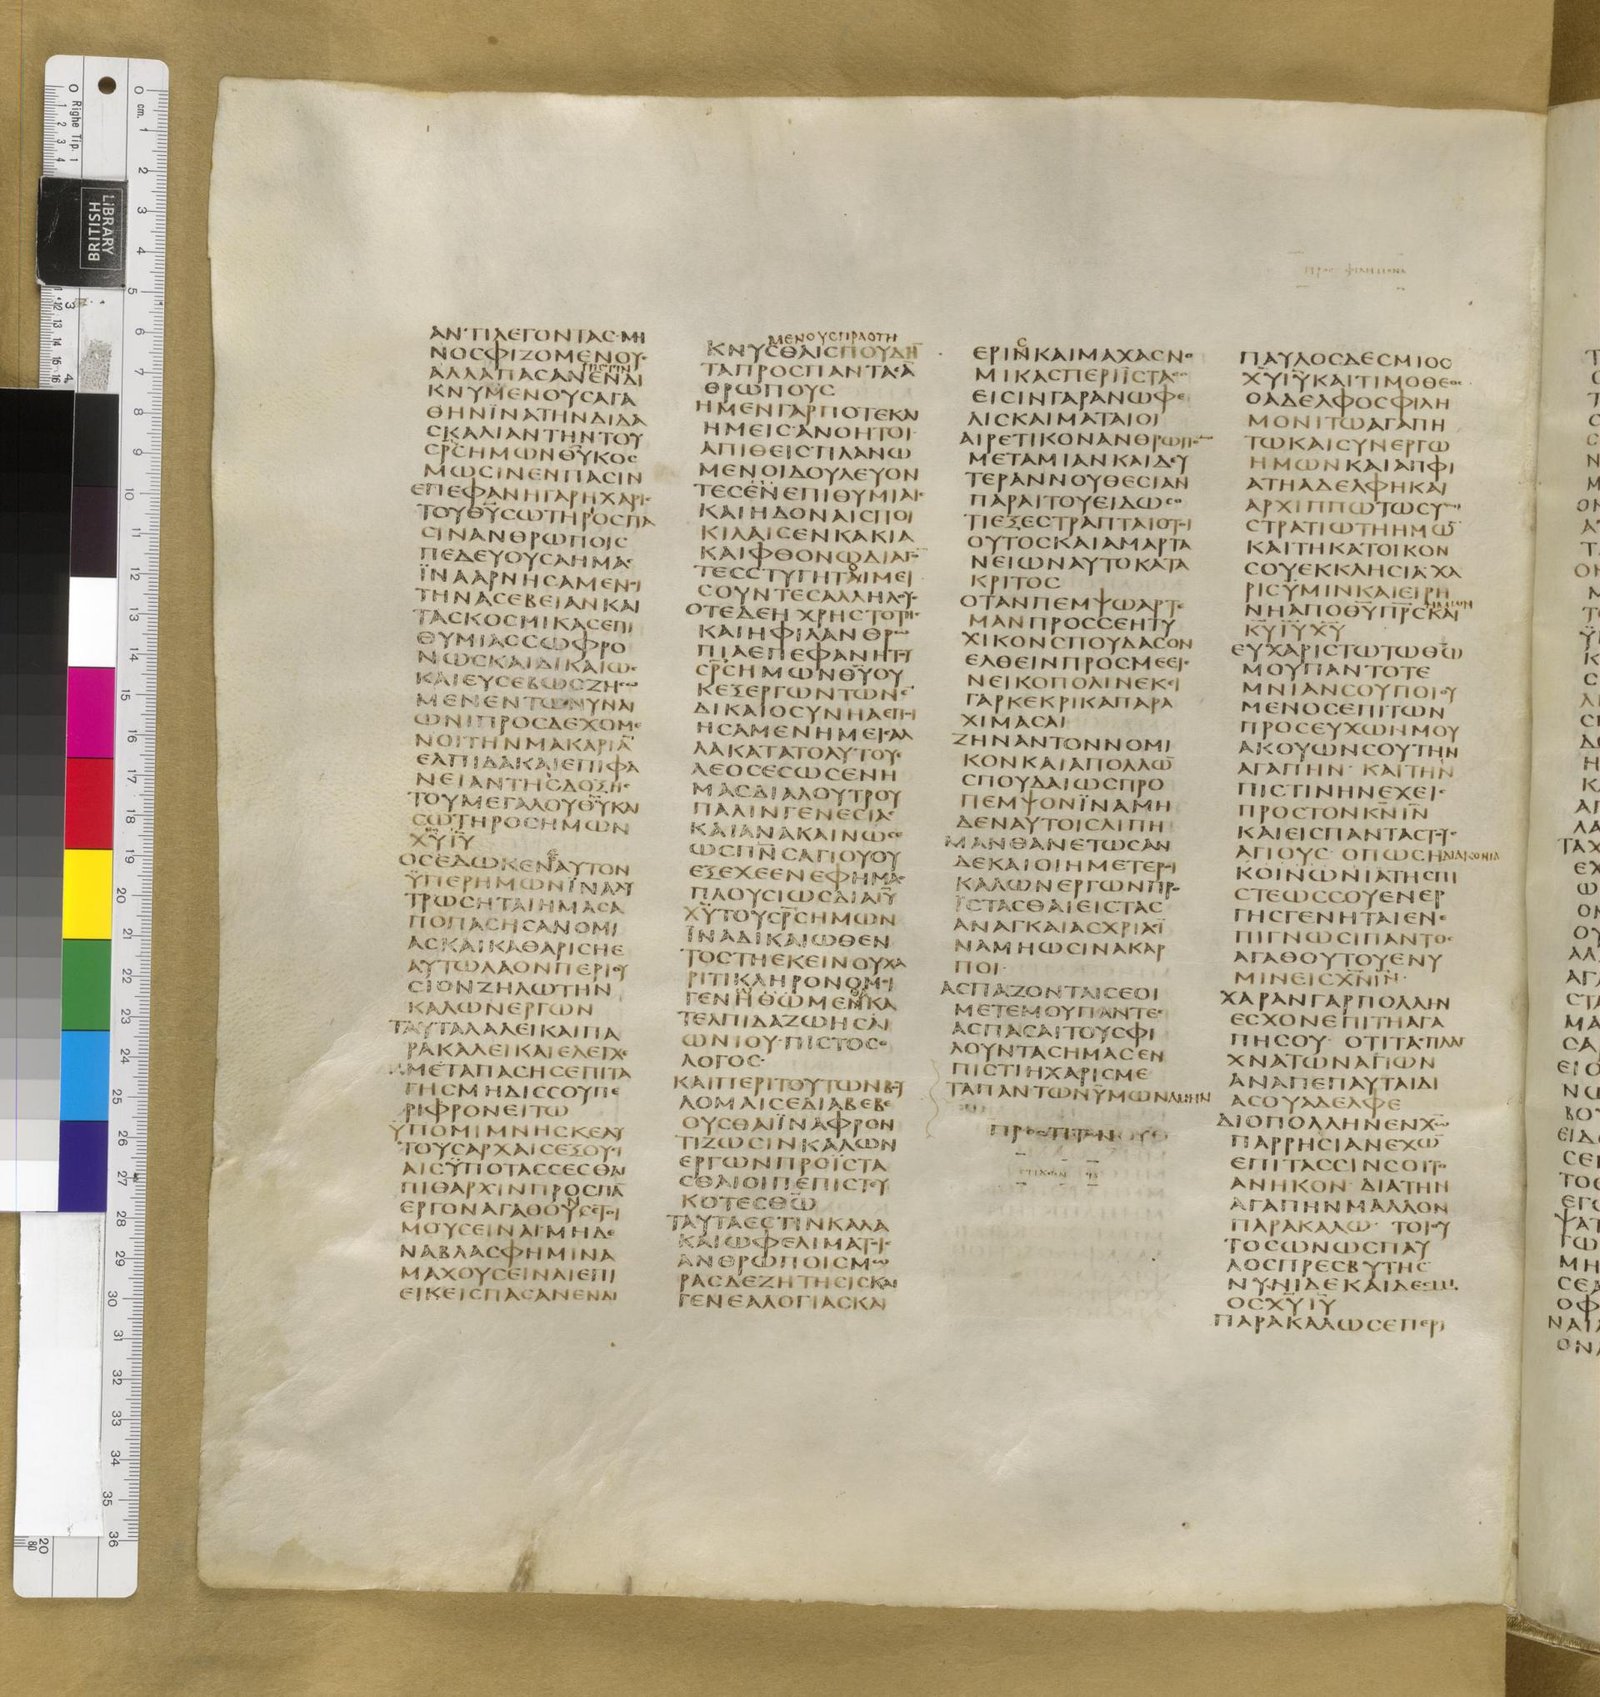 ΠΡΟΣ ΦΙΛΗΜΟΝΑ
ΑΝΤΙΛΕΓΟΝΤΑΣ ΜΗ
ΝΟΣΦΙΖΟΜΕΝΟΥΣ
ΠΙΣΤΙΝ
ΑΛΛΑΠΑΣΑΝΕΝΔΙ
ΚΝΥΜΕΝΟΥΣΑΓΑ
ΘΗΝΪΝΑΤΗΝΔΙΔΑ
ΣΚΑΛΙΑΝΤΗΝΤΟΥ
ΣΡ̅Σ̅ΗΜΩΝΘΥ̅ΚΟΣ
ΜΩΣΙΝΕΝΠΑΣΙΝ
ΕΠΕΦΑΝΗΓΑΡΗΧΑΡΙΣ
ΤΟΥΘΥ̅ΣΩΤΗΡΟΣΠΑ
ΣΙΝΑΝΘΡΩΠΟΙΣ
ΠΕΔΕΥΟΥΣΑΗΜΑΣ
ΪΝΑΑΡΝΗΣΑΜΕΝΟΙ
ΤΗΝΑΣΕΒΕΙΑΝΚΑΙ
ΤΑΣΚΟΣΜΙΚΑΣΕΠΙ
ΘΥΜΙΑΣΣΩΦΡΟ
ΝΩΣΚΑΙΔΙΚΑΙΩΣ
ΚΑΙΕΥΣΕΒΩΣΖΗΣΩ
ΜΕΝΕΝΤΩΝΥΝΑΙ
ΩΝΙΠΡΟΣΔΕΧΟΜΕ
ΝΟΙΤΗΝΜΑΚΑΡΙΑ̅
ΕΛΠΙΔΑΚΑΙΕΠΙΦΑ
ΝΕΙΑΝΤΗΣΔΟΞΗΣ
ΤΟΥΜΕΓΑΛΟΥΘΥ̅ΚΑΙ
ΣΩΤΗΡΟΣΗΜΩΝ
ΧΥ̅ΙΥ̅
ΟΣΕΔΩΚΕΝΑΥΤΟΝ
ΫΠΕΡΗΜΩΝΪΝΑΛΥ
ΤΡΩΣΗΤΑΙΗΜΑΣΑ
ΠΟΠΑΣΗΣΑΝΟΜΙ
ΑΣΚΑΙΚΑΘΑΡΙΣΗΕ
ΑΥΤΩΛΑΟΝΠΕΡΙΟΥ
ΣΙΟΝΖΗΛΩΤΗΝ
ΚΑΛΩΝΕΡΓΩΝ
ΤΑΥΤΑΛΑΛΕΙΚΑΙΠΑ
ΡΑΚΑΛΕΙΚΑΙΕΛΕΓΧΕ
ΜΕΤΑΠΑΣΗΣΕΠΙΤΑ
ΓΗΣΜΗΔΙΣΣΟΥΠΕ
ΡΙΦΡΟΝΕΙΤΩ
ΫΠΟΜΙΜΝΗΣΚΕΑΥ
ΤΟΥΣΑΡΧΑΙΣΕΞΟΥΣΙ
ΑΙΣΫΠΟΤΑΣΣΕΣΘΑΙ
ΠΙΘΑΡΧΙΝΠΡΟΣΠΑ̅
ΕΡΓΟΝΑΓΑΘΟΝΕΤΟΙ
ΜΟΥΣΕΙΝΑΙΜΗΔΕ
ΝΑΒΛΑΣΦΗΜΙΝΑ
ΜΑΧΟΥΣΕΙΝΑΙΕΠΙ
ΕΙΚΕΙΣΠΑΣΑΝΕΝΔΙ
ΜΕΝΟΥΣΠΡΑΟΤΗ
ΚΝΥΣΘΑΙΣΠΟΥΔΗ̅
ΤΑΠΡΟΣΠΑΝΤΑΣΑ̅
ΘΡΩΠΟΥΣ
ΗΜΕΝΓΑΡΠΟΤΕΚΑΙ
ΗΜΕΙΣΑΝΟΗΤΟΙ
ΑΠΙΘΕΙΣΠΛΑΝΩ
ΜΕΝΟΙΔΟΥΛΕΥΟΝ
ΤΕΣΕΝΕΠΙΘΥΜΙΑΙΣ
ΚΑΙΗΔΟΝΑΙΣΠΟΙ
ΚΙΛΑΙΣΕΝΚΑΚΙΑ
ΚΑΙΦΘΟΝΩΔΙΑΓΟ̅
ΤΕΣΣΤΥΓΗΤΟΙΜΕΙ
ΣΟΥΝΤΕΣΑΛΛΗΛΟΥΣ
ΟΤΕΔΕΗΧΡΗΣΤΟΤΗΣ
ΚΑΙΗΦΙΛΑΝΘΡΩ
ΠΙΑΕΠΕΦΑΝΗΤΟΥ
ΣΡ̅Σ̅ΗΜΩΝΘΥ̅ΟΥ
ΚΕΞΕΡΓΩΝΤΩΝΕ̅
ΔΙΚΑΙΟΣΥΝΗΑΕΠΟΙ
ΗΣΑΜΕΝΗΜΕΙΣΑΛ
ΛΑΚΑΤΑΤΟΑΥΤΟΥ
ΛΕΟΣΕΣΩΣΕΝΗ
ΜΑΣΔΙΑΛΟΥΤΡΟΥ
ΠΑΛΙΝΓΕΝΕΣΙΑΣ
ΚΑΙΑΝΑΚΑΙΝΩΣΕ
ΩΣΠΝ̅Σ̅ΑΓΙΟΥΟΥ
ΕΞΕΧΕΕΝΕΦΗΜΑΣ
ΠΛΟΥΣΙΩΣΔΙΑΙΥ̅
ΧΥ̅ΤΟΥΣΡ̅Σ̅ΗΜΩΝ
ΪΝΑΔΙΚΑΙΩΘΕΝ
ΤΕΣΤΗΕΚΕΙΝΟΥΧΑ
ΡΙΤΙΚΛΗΡΟΝΟΜΟΙ
ΓΕΝΗΘΩΜΕΝΚΑ
ΤΕΛΠΙΔΑΖΩΗΣΑΙ
ΩΝΙΟΥ ΠΙΣΤΟΣΟ
ΛΟΓΟΣ
ΚΑΙΠΕΡΙΤΟΥΤΩΝΒΟΥ
ΛΟΜΑΙΣΕΔΙΑΒΕΒΕ
ΟΥΣΘΑΙΪΝΑΦΡΟΝ
ΤΙΖΩΣΙΝΚΑΛΩΝ
ΕΡΓΩΝΠΡΟΪΣΤΑ
ΣΘΑΙΟΙΠΕΠΙΣΤΕΥ
ΚΟΤΕΣΘΩ̅
ΤΑΥΤΑΕΣΤΙΝΚΑΛΑ
ΚΑΙΩΦΕΛΙΜΑΤΟΙΣ
ΑΝΘΡΩΠΟΙΣΜΩ
ΡΑΣΔΕΖΗΤΗΣΙΣΚΑΙ
ΓΕΝΕΑΛΟΓΙΑΣΚΑΙ
ΕΡΙΝΚΑΙΜΑΧΑΣΝΟ
ΜΙΚΑΣΠΕΡΙΪΣΤΑΣΟ
ΕΙΣΙΝΓΑΡΑΝΩΦΕ
ΛΙΣΚΑΙΜΑΤΑΙΟΙ
ΑΙΡΕΤΙΚΟΝΑΝΘΡΩΠΟ̅
ΜΕΤΑΜΙΑΝΚΑΙΔΕΥ
ΤΕΡΑΝΝΟΥΘΕΣΙΑΝ
ΠΑΡΑΙΤΟΥΕΙΔΩΣΟ
ΤΙΕΞΕΣΤΡΑΠΤΑΙΟΤΟΙ
ΟΥΤΟΣΚΑΙΑΜΑΡΤΑ
ΝΕΙΩΝΑΥΤΟΚΑΤΑ
ΚΡΙΤΟΣ
ΟΤΑΝΠΕΜΨΩΑΡΤΕ
ΜΑΝΠΡΟΣΣΕΗΤΥ
ΧΙΚΟΝΣΠΟΥΔΑΣΟΝ
ΕΛΘΕΙΝΠΡΟΣΜΕΕΙΣ
ΝΕΙΚΟΠΟΛΙΝΕΚΕΙ
ΓΑΡΚΕΚΡΙΚΑΠΑΡΑ
ΧΙΜΑΣΑΙ
ΖΗΝΑΝΤΟΝΝΟΜΙ
ΚΟΝΚΑΙΑΠΟΛΛΩ̅
ΣΠΟΥΔΑΙΩΣΠΡΟ
ΠΕΜΨΟΝΪΝΑΜΗ
ΔΕΝΑΥΤΟΙΣΛΙΠΗ
ΜΑΝΘΑΝΕΤΩΣΑΝ
ΔΕΚΑΙΟΙΗΜΕΤΕΡΟΙ
ΚΑΛΩΝΕΡΓΩΝΠΡΟ
ΪΣΤΑΣΘΑΙΕΙΣΤΑΣ
ΑΝΑΓΚΑΙΑΣΧΡΙΑΣΪ
ΝΑΜΗΩΣΙΝΑΚΑΡ
ΠΟΙ
ΑΣΠΑΖΟΝΤΑΙΣΕΟΙ
ΜΕΤΕΜΟΥΠΑΝΤΕΣ
ΑΣΠΑΣΑΙΤΟΥΣΦΙ
ΛΟΥΝΤΑΣΗΜΑΣΕΝ
ΠΙΣΤΙΗΧΑΡΙΣΜΕ
ΤΑΠΑΝΤΩΝΫΜΩΝΑΜΗΝ
ΠΡΟΣΤΙΤΟΝ
ΣΤΙΧΩΝ
ΠΑΥΛΟΣΔΕΣΜΙΟΣ
ΧΥ̅ΙΥ̅ΚΑΙΤΙΜΟΘΕΟΣ
ΟΑΔΕΛΦΟΣΦΙΛΗ
ΜΟΝΙΤΩΑΓΑΠΗ
ΤΩΚΑΙΣΥΝΕΡΓΩ
ΗΜΩΝΚΑΙΑΠΦΙ
ΑΤΗΑΔΕΛΦΗΚΑΙ
ΑΡΧΙΠΠΩΤΩΣΥ
ΣΤΡΑΤΙΩΤΗΗΜΩ̅
ΚΑΙΤΗΚΑΤΟΙΚΟΝ
ΣΟΥΕΚΚΛΗΣΙΑΧΑ
ΡΙΣΫΜΙΝΚΑΙΕΙΡΗ
ΝΗΑΠΟΘΥ̅ΠΡ̅Σ̅ΗΜΩΝΚΑΙ
ΚΥ̅ΙΥ̅ΧΥ̅
ΕΥΧΑΡΙΣΤΩΤΩΘΩ̅
ΜΟΥΠΑΝΤΟΤΕ
ΜΝΙΑΝΣΟΥΠΟΙΟΥ
ΜΕΝΟΣΕΠΙΤΩΝ
ΠΡΟΣΕΥΧΩΝΜΟΥ
ΑΚΟΥΩΝΣΟΥΤΗΝ
ΑΓΑΠΗΝ ΚΑΙΤΗΝ
ΠΙΣΤΙΝΗΝΕΧΕΙΣ
ΠΡΟΣΤΟΝΚΝ̅ΙΝ̅
ΚΑΙΕΙΣΠΑΝΤΑΣΤΟΥΣ
ΑΓΙΟΥΣ ΟΠΩΣΗΔΙΑΚΟΝΙΑ
ΚΟΙΝΩΝΙΑΤΗΣΠΙ
ΣΤΕΩΣΣΟΥΕΝΕΡ
ΓΗΣΓΕΝΗΤΑΙΕΝΕ
ΠΙΓΝΩΣΙΠΑΝΤΟΣ
ΑΓΑΘΟΥΤΟΥΕΝΥ
ΜΙΝΕΙΣΧΝ̅ΙΝ̅
ΧΑΡΑΝΓΑΡΠΟΛΛΗΝ
ΕΣΧΟΝΕΠΙΤΗΑΓΑ
ΠΗΣΟΥ ΟΤΙΤΑΣΠΛΑΓ
ΧΝΑΤΩΝΑΓΙΩΝ
ΑΝΑΠΕΠΑΥΤΑΙΔΙ
ΑΣΟΥΑΔΕΛΦΕ
ΔΙΟΠΟΛΛΗΝΕΝΧΩ̅
ΠΑΡΡΗΣΙΑΝΕΧΩ̅
ΕΠΙΤΑΣΣΙΝΣΟΙΤΟ
ΑΝΗΚΟΝ ΔΙΑΤΗΝ
ΑΓΑΠΗΝΜΑΛΛΟΝ
ΠΑΡΑΚΑΛΩ ΤΟΙΟΥ
ΤΟΣΩΝΩΣΠΑΥ
ΛΟΣΠΡΕΣΒΥΤΗΣ
ΝΥΝΙΔΕΚΑΙΔΕΣΜΙ
ΟΣΧΥ̅ΙΥ̅
ΠΑΡΑΚΑΛΩΣΕΠΕΡΙ